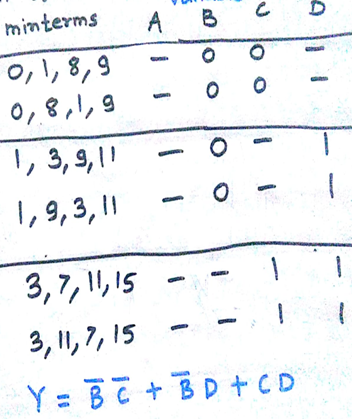 minterms A B C D
0, 1, 8, 9 – 0 0 –
0, 8, 1, 9 – 0 0 –
1, 3, 9, 11 – 0 – 1
1, 9, 3, 11 – 0 – 1
3, 7, 11, 15 – – 1 1
3, 11, 7, 15 – – 1 1
Y = B̅ C̅ + B̅ D + C D